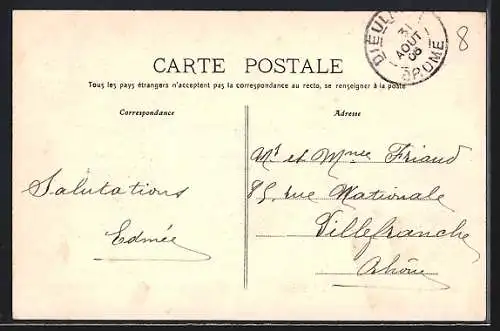 DIEULE
31
AOUT
06
DROME
8
CARTE POSTALE
Tous les pays étrangers n'acceptent pas la correspondance au recto, se renseigner à la poste
Correspondance
Adresse
Salutations
Edmée
Mr et Mmee Friaud
85, rue Nationale
Villefranche
Rhône